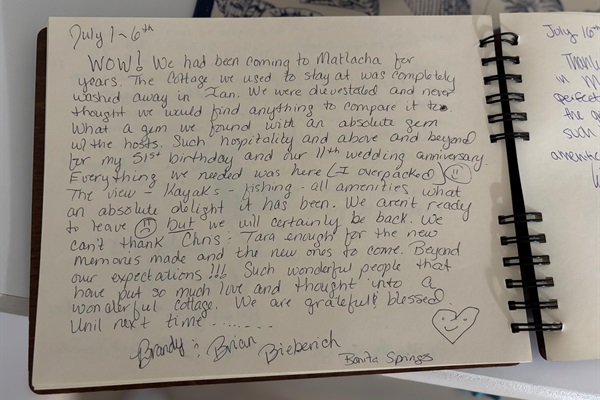 July 1~6th
WOW! We had been coming to Matlacha for
years. The cottage we used to stay at was completely
washed away in Ian. We were devestated and never
thought we would find anything to compare it to.
What a gem we found with an absolute gem
w/the hosts. Such hospitality and above and beyond
for my 51st birthday and our 11th wedding anniversary.
Everything we needed was here (I overpacked)
The view - Kayaks - fishing - all amenities what
an absolute delight it has been. We aren't ready
to leave but we will certainly be back. We
can't thank Chris & Tara enough for the new
memories made and the new ones to come. Beyond
our expectations!!! Such wonderful people that
have put so much love and thought into a
wonderful cottage. We are grateful & blessed.
Until next time.......
Brandy & Brian Bieberich
Bonita Springs
July 16th
Thank
in M
perfect
the
such
ameniti